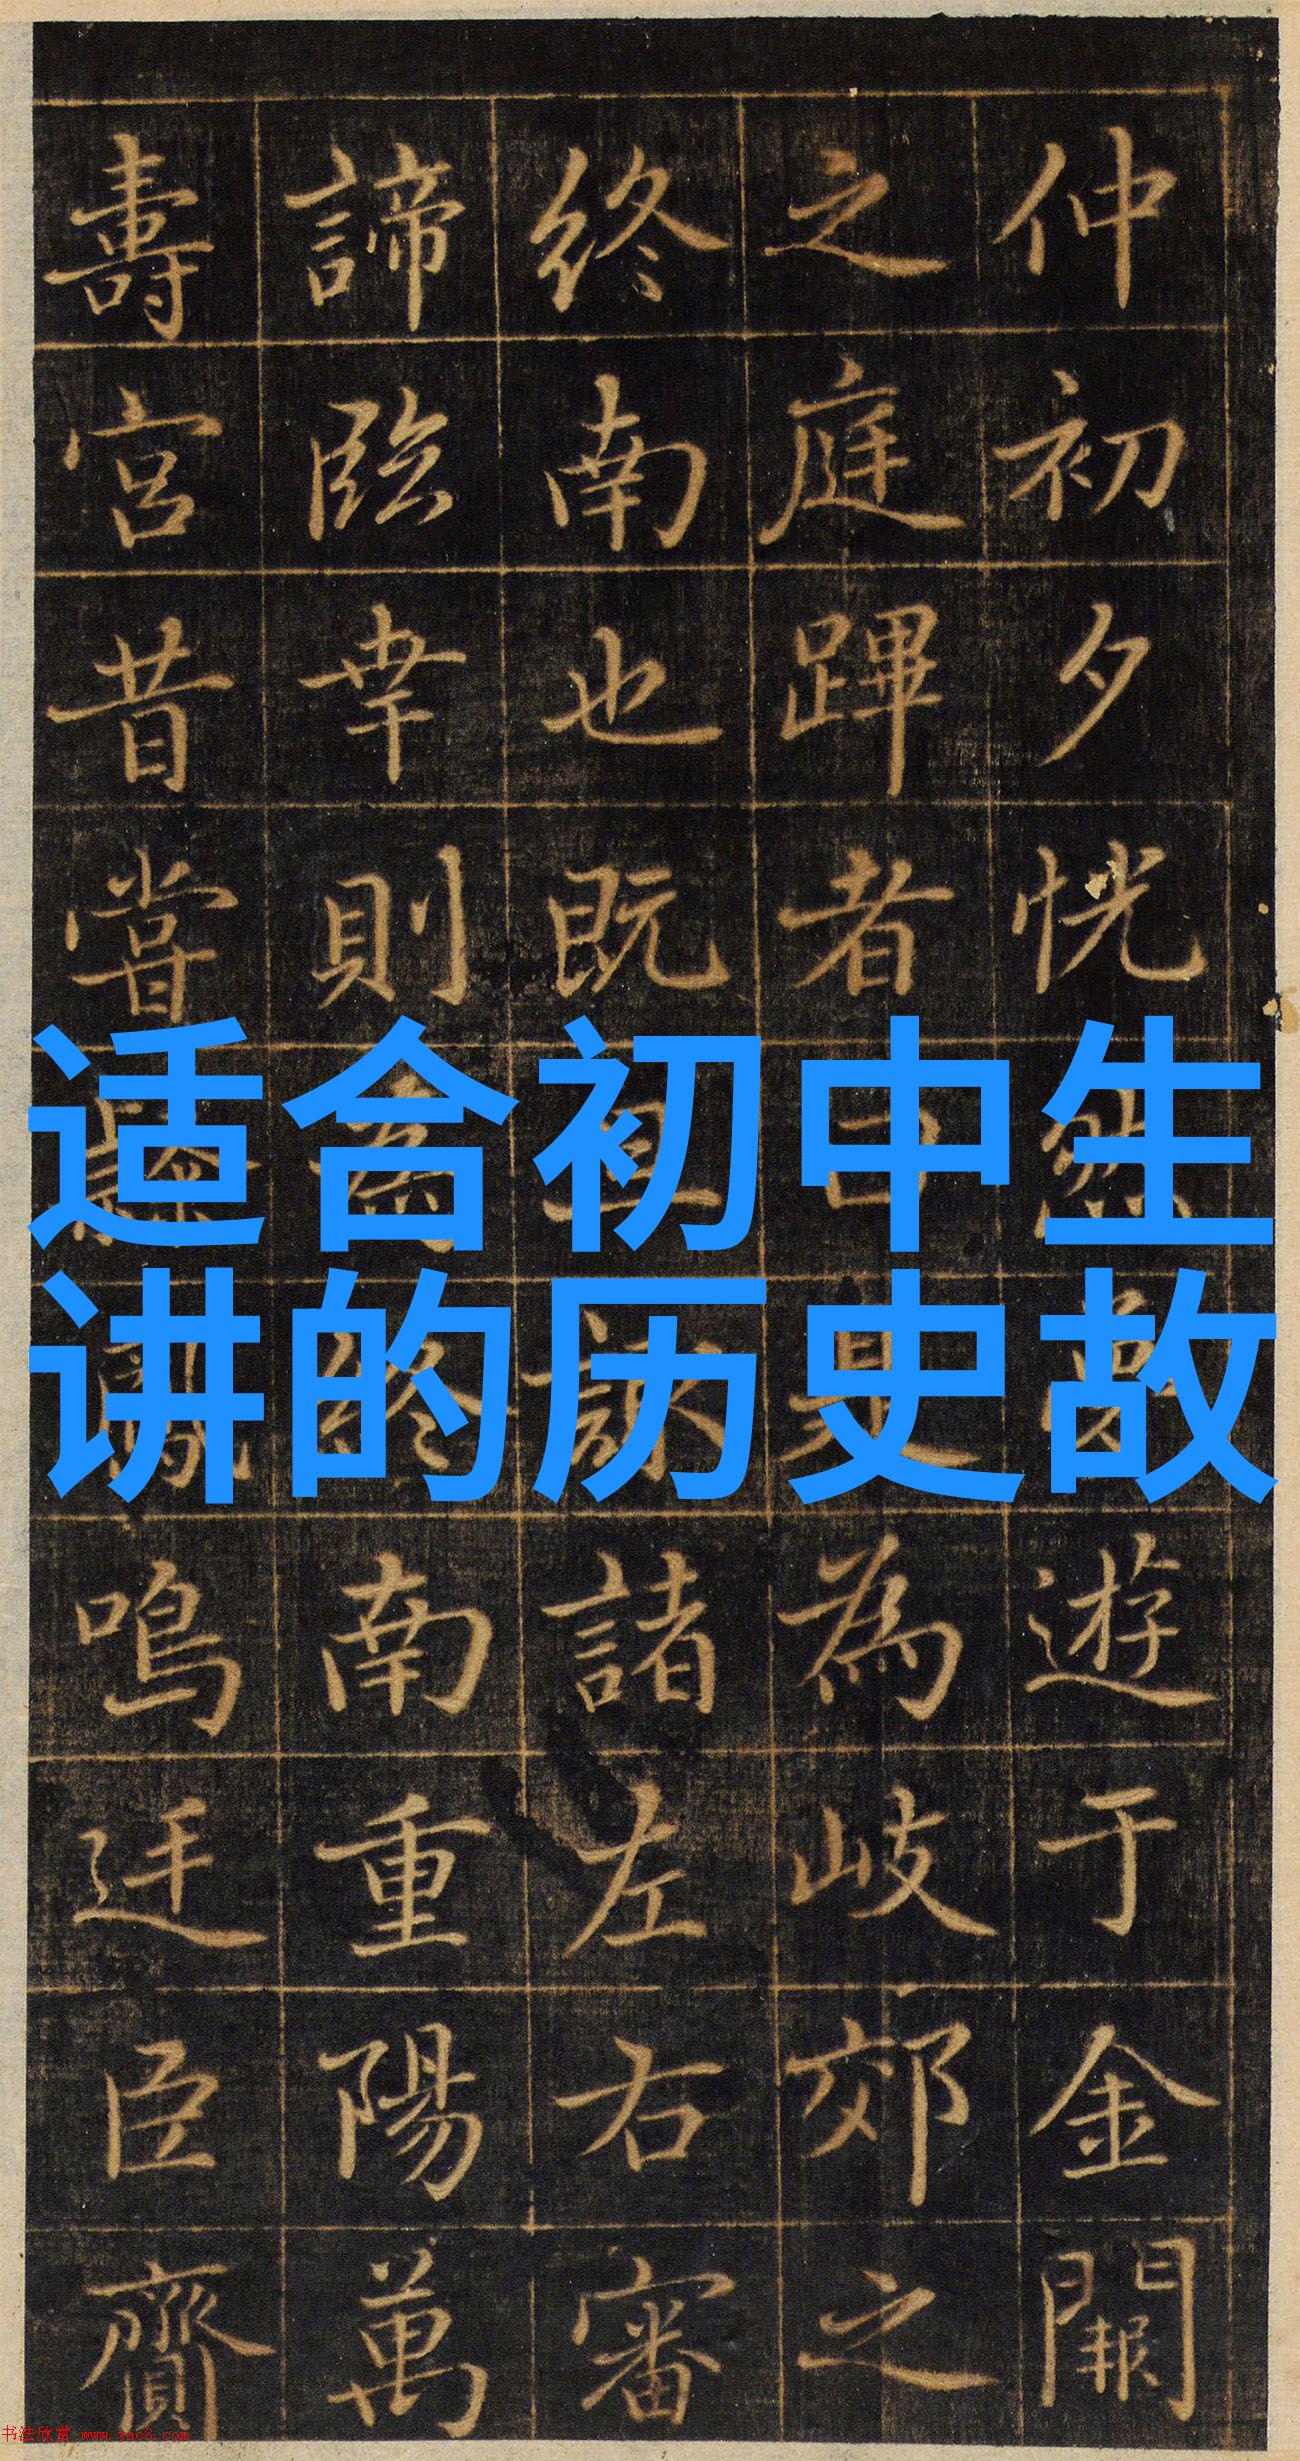 仲初夕恍然遊于金闕
之庭蹕者曰是為岐郊之
終南也既且訣諸左右審
諦臨幸則為終南重陽萬
壽宮昔嘗鳴迋臣齎
适合初中生
讲的历史故
书法欣赏 www.yac8.com